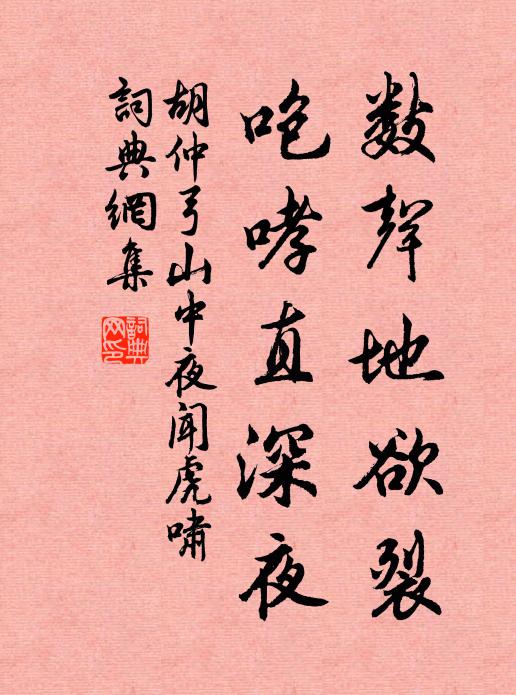 数聲地欲裂
咆哮直深夜
胡仲弓山中夜聞虎嘯
詞典網集
詞典
网印